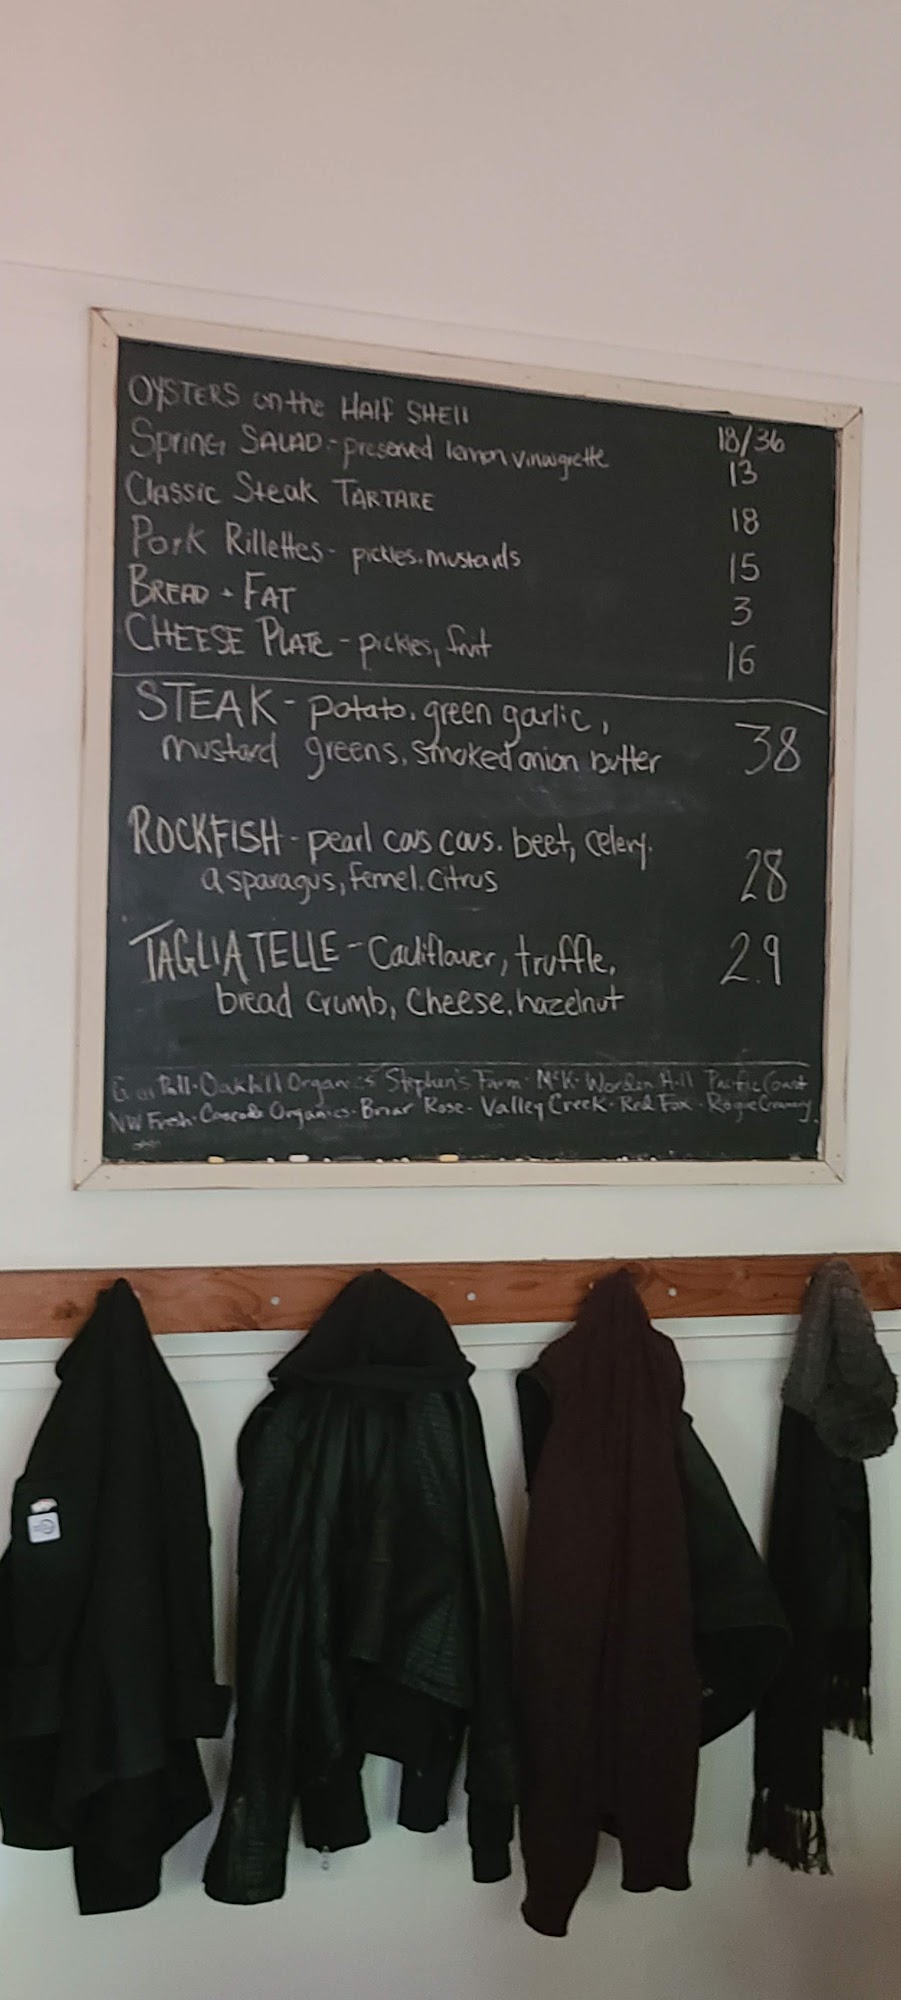 OYSTERS on the HALF SHELL 18/36
Spring SALAD - preserved lemon vinaigrette 13
Classic Steak TARTARE 18
Pork Rillettes - pickles, mustards 15
BREAD + FAT 3
CHEESE PLATE - pickles, fruit 16
STEAK - potato, green garlic,
mustard greens, smoked onion butter 38
ROCKFISH - pearl cous cous, beet, celery,
asparagus, fennel, citrus 28
TAGLIATELLE - Cauliflower, truffle, 29
bread crumb, cheese, hazelnut
Oakhill Organics Stephens Farm · McK · Worden Hill Pacific Coast
NW Fresh · Cascade Organics · Briar Rose · Valley Creek · Red Fox · Rogue Creamery